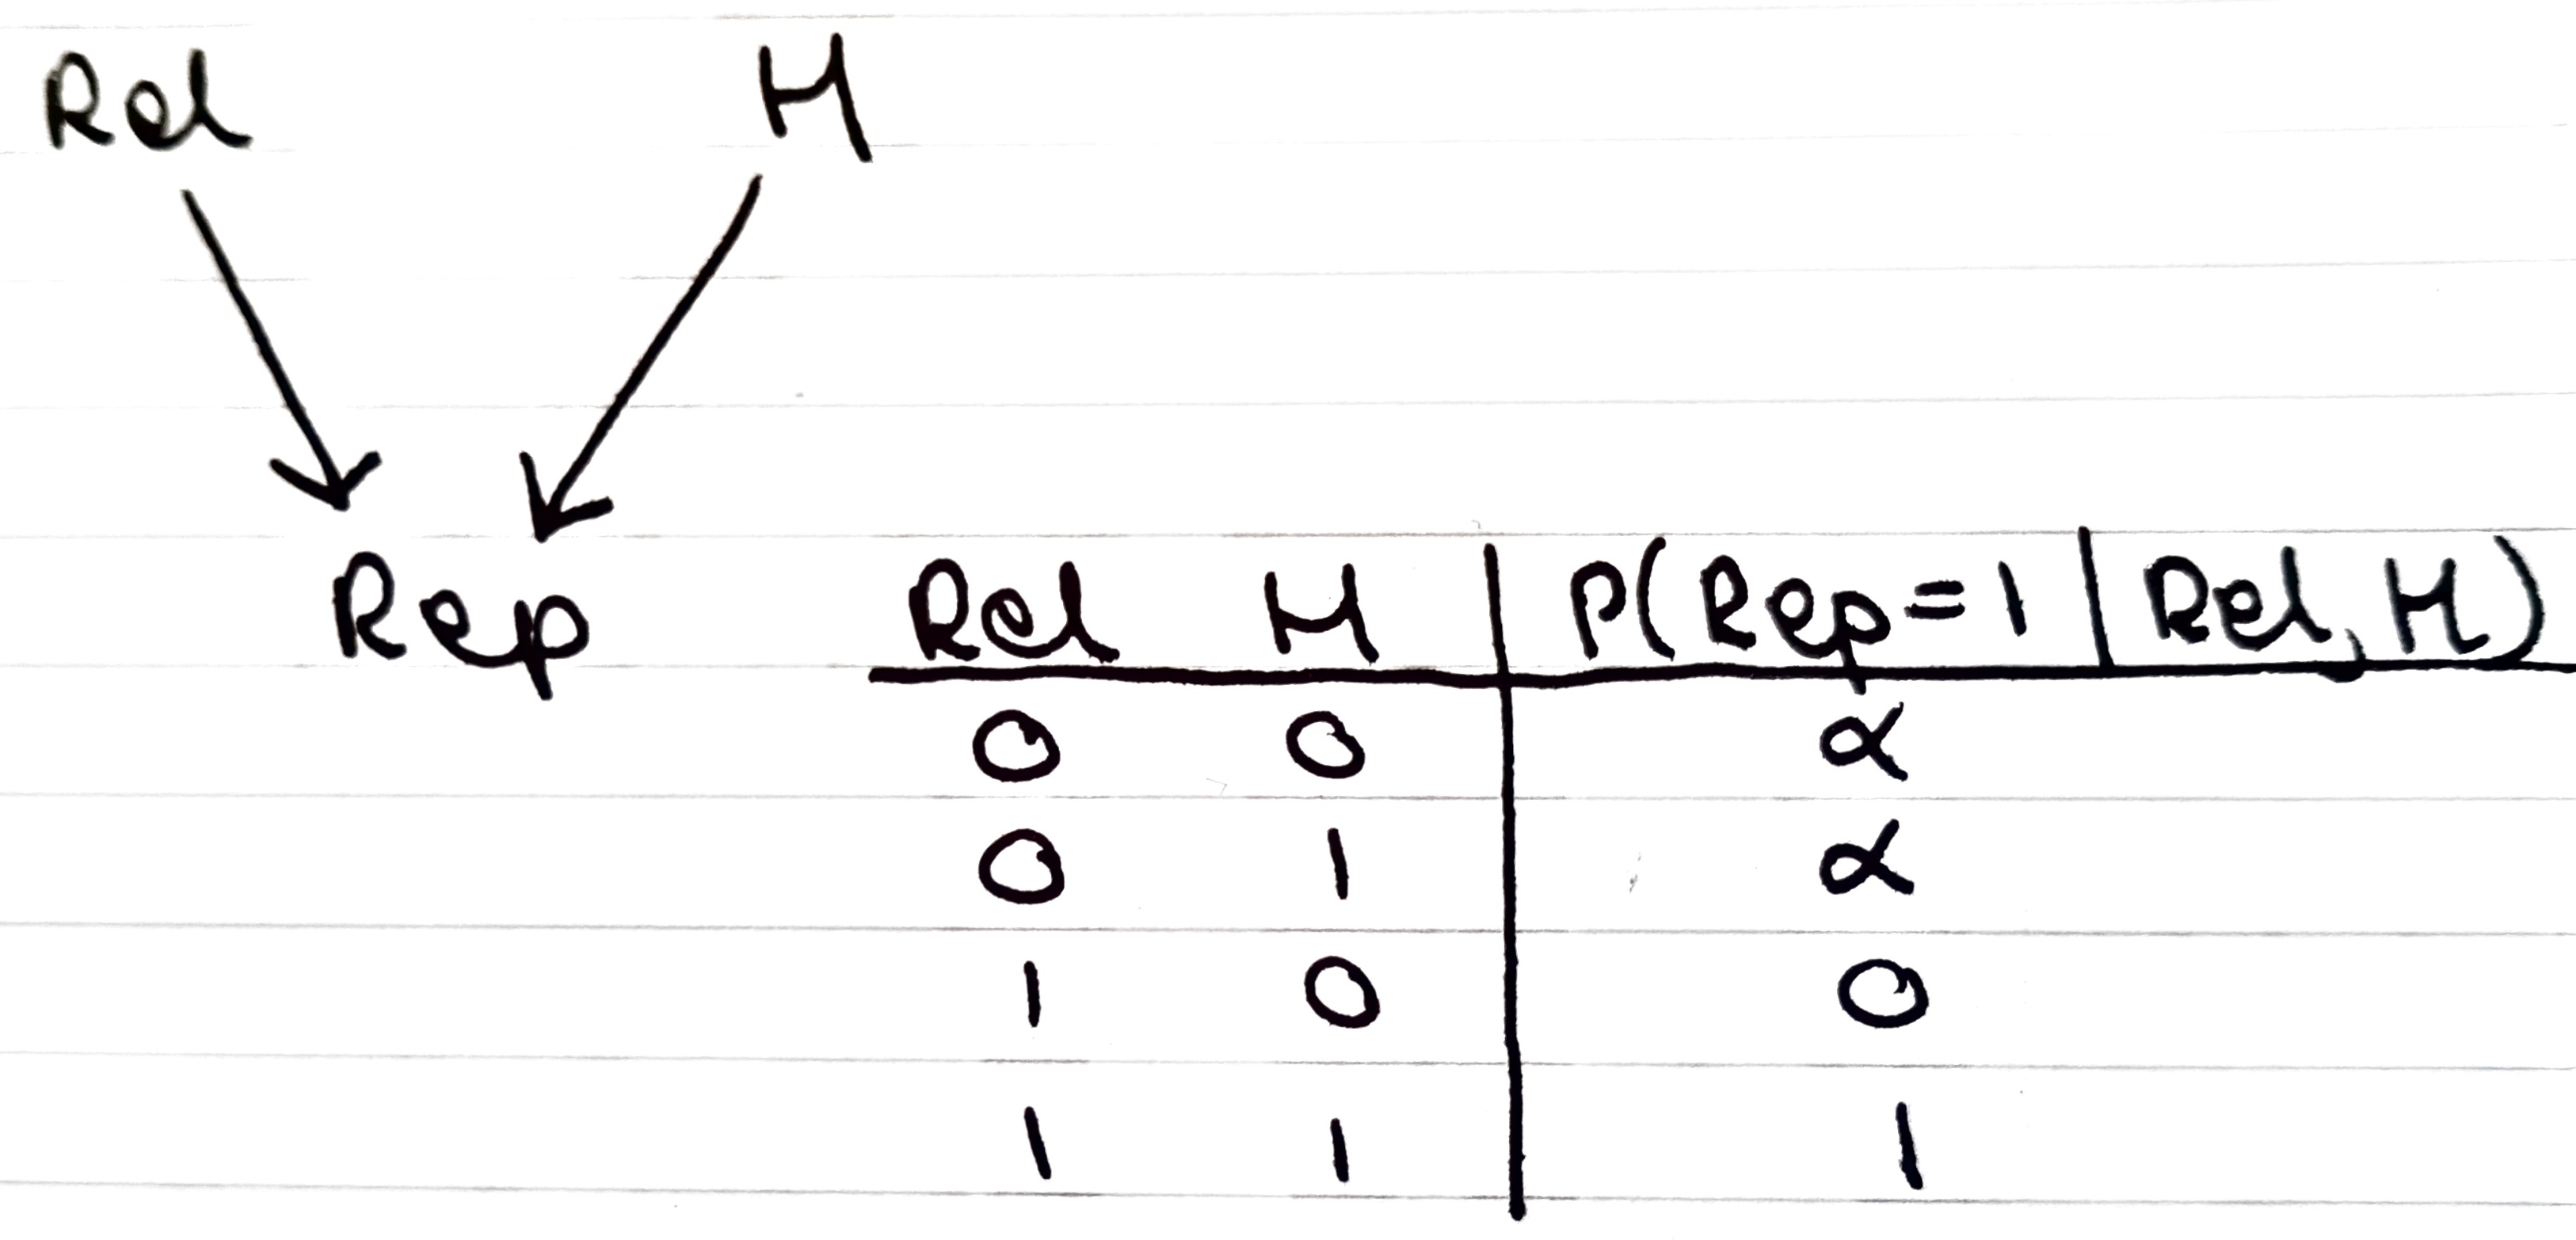 Rel H
Rep
Rel H P(Rep=1|Rel,H)
0 0 α
0 1 α
1 0 0
1 1 1